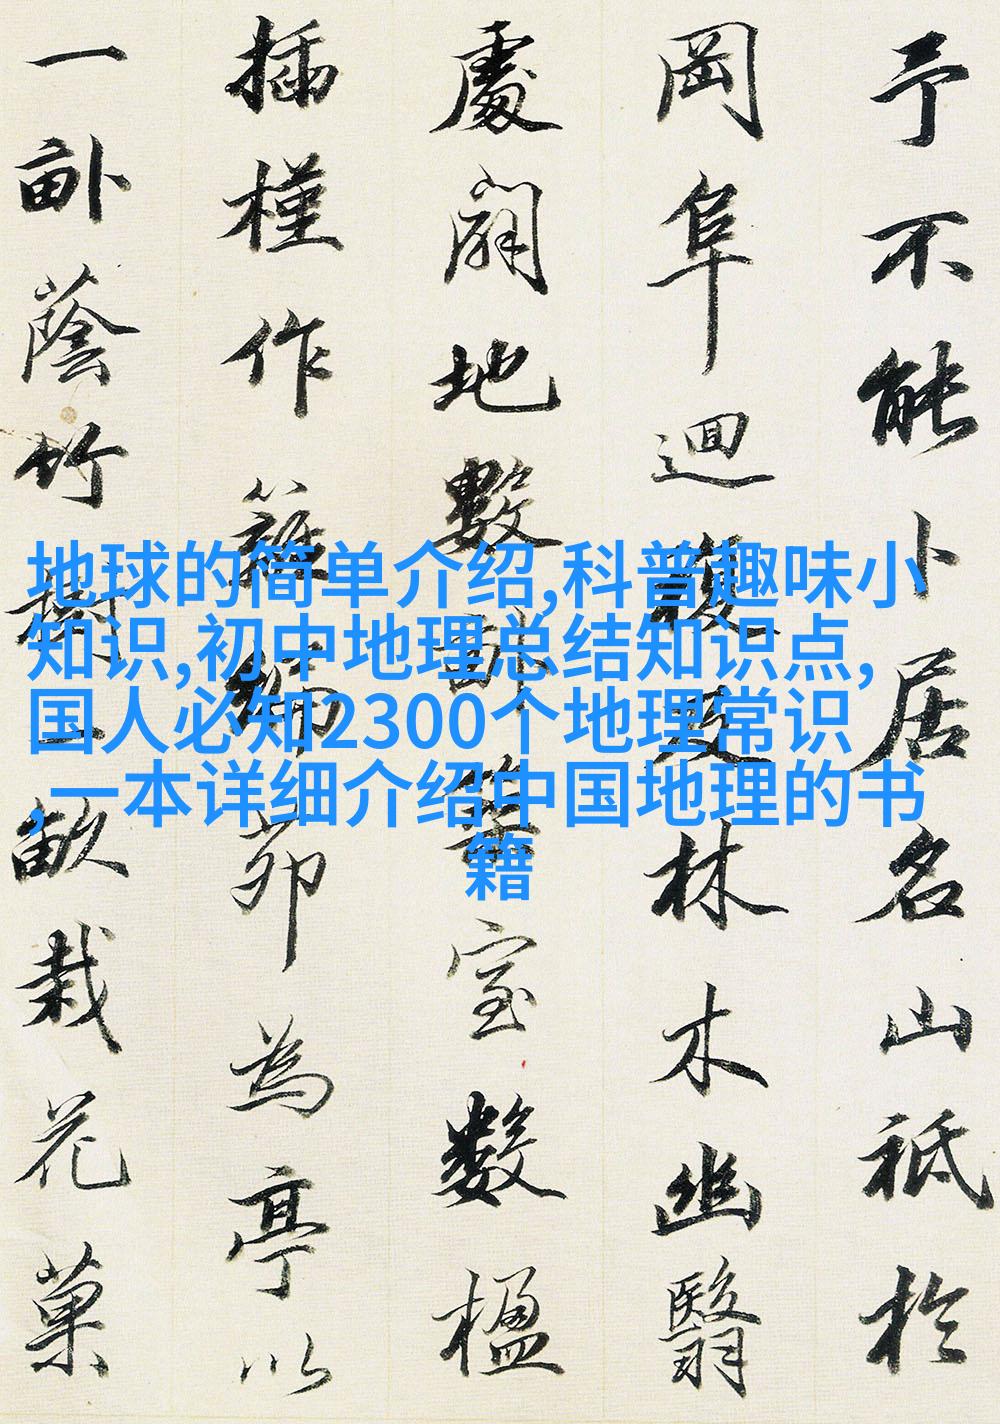 予不能卜居名山祗於
岡阜迴複及林木幽翳
處闢地數畝築室數楹
插槿作籬編茆為亭以
一畝蔭竹樹一畝栽花菓
地球的简单介绍,科普趣味小
知识,初中地理总结知识点,
国人必知2300个地理常识
,一本详细介绍中国地理的书
籍